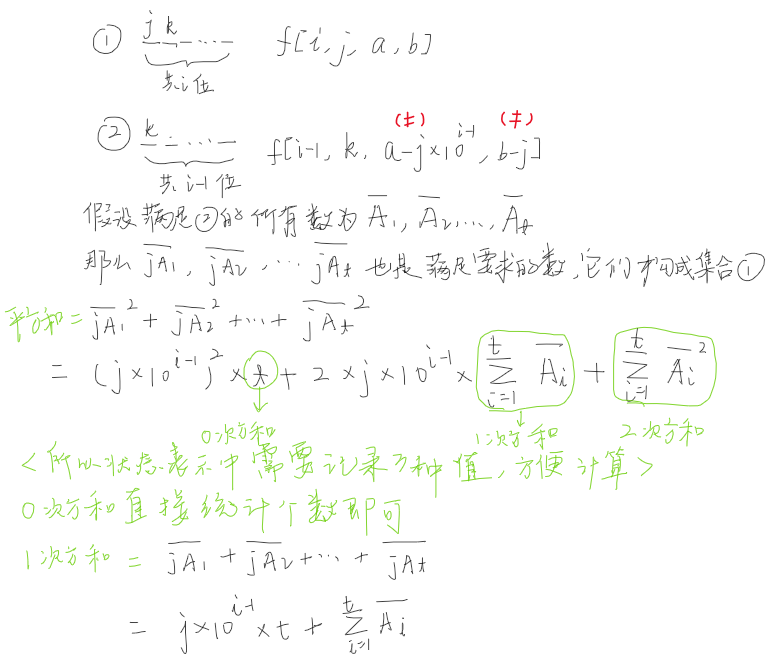 ① j k ... f[i, j, a, b]
共i位
② k ... f[i-1, k, a-j×10^{i-1}, b-j]
(≠) (≠)
共i-1位
假设满足②的所有数为 A̅₁, A̅₂, ..., A̅ₜ
那么 \overline{jA₁}, \overline{jA₂}, ... \overline{jAₜ} 也是满足要求的数,它们构成集合①
平方和 = \overline{jA₁}² + \overline{jA₂}² + ... + \overline{jAₜ}²
= (j×10^{i-1})² × t + 2×j×10^{i-1} × \sum_{i=1}^{t} \overline{A_i} + \sum_{i=1}^{t} \overline{A_i}²
0次方和 1次方和 2次方和
<所以状态表示中需要记录3种值,方便计算>
0次方和直接统计个数即可
1次方和 = \overline{jA₁} + \overline{jA₂} + ... + \overline{jAₜ}
= j×10^{i-1}×t + \sum_{i=1}^{t} \overline{A_i}